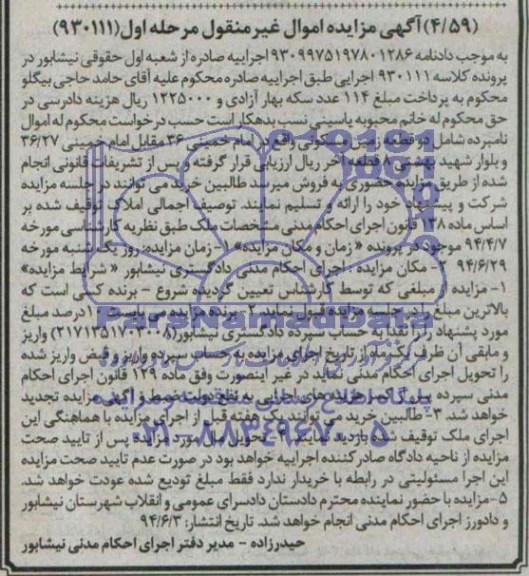 (۴/۵۹) آگهی مزایده اموال غیر منقول مرحله اول (۹۳۰۱۱۱)
به موجب دادنامه ۹۳۰۹۹۷۵۱۹۷۸۰۱۲۸۶ اجراییه صادره از شعبه اول حقوقی نیشابور در
پرونده کلاسه ۹۳۰۱۱۱ اجرایی طبق اجراییه صادره محکوم علیه آقای حامد حاجی بیگلو
محکوم به پرداخت مبلغ ۱۱۴ عدد سکه بهار آزادی و ۱۲۲۵۰۰۰ ریال هزینه دادرسی در
حق محکوم له خانم محبوبه یاسینی نسب بدهکار است حسب درخواست محکوم له اموال
نامبرده شامل دو قطعه زمین مسکونی واقع در امام خمینی ۳۶ مقابل امام خمینی ۳۶/۲۷
و بلوار شهید بهشتی ۸ قطعه آخر ریال ارزیابی قرار گرفته و پس از تشریفات قانونی انجام
شده از طریق مزایده حضوری به فروش میرسد طالبین خرید می توانند در جلسه مزایده
شرکت و پیشنهاد خود را ارائه و تسلیم نمایند. توصیف اجمالی املاک توقیف شده بر
اساس ماده ۱۳۸ قانون اجرای احکام مدنی مشخصات ملک طبق نظریه کارشناسی مورخه
۹۴/۴/۷ موجود در پرونده « زمان و مکان مزایده» ۱- زمان مزایده: روز یک شنبه مورخه
۹۴/۶/۲۹ ۲- مکان مزایده : اجرای احکام مدنی دادگستری نیشابور « شرایط مزایده»
۱- مزایده از مبلغی که توسط کارشناس تعیین گردیده شروع - برنده کسی است که
بالاترین مبلغ را در جلسه مزایده قبول نماید. ۲- برنده مزایده می بایست ۱۰ درصد مبلغ
مورد پشنهاد را نقدا به حساب سپرده دادگستری نیشابور واریز
و مابقی آن ظرف یک ماه از تاریخ اجرای مزایده به حساب سپرده واریز و قبض واریز شده
را تحویل اجرای احکام مدنی نماید در غیر اینصورت وفق ماده ۱۲۹ قانون اجرای احکام
مدنی سپرده پس از کسر هزینه های اجرایی به نفع دولت ضبط و آگهی مزایده تجدید
خواهد شد. ۳- طالبین خرید می توانند یک هفته قبل از اجرای مزایده با هماهنگی این
اجرای ملک توقیف شده بازدید نمایند. ۴- تحویل مال مورد مزایده پس از تایید صحت
مزایده از ناحیه دادگاه صادر کننده اجراییه خواهد بود در صورت عدم تایید صحت مزایده
این اجرا مسئولیتی در رابطه با خریدار ندارد فقط مبلغ تودیع شده عودت خواهد شد.
۵- مزایده با حضور نماینده محترم دادستان دادسرای عمومی و انقلاب شهرستان نیشابور
و دادورز اجرای احکام مدنی انجام خواهد شد. تاریخ انتشار: ۹۴/۶/۳
حیدرزاده - مدیر دفتر اجرای احکام مدنی نیشابور
ParsNamadData
۰۲۱-۸۸۳۴۹۶۷۰-۵